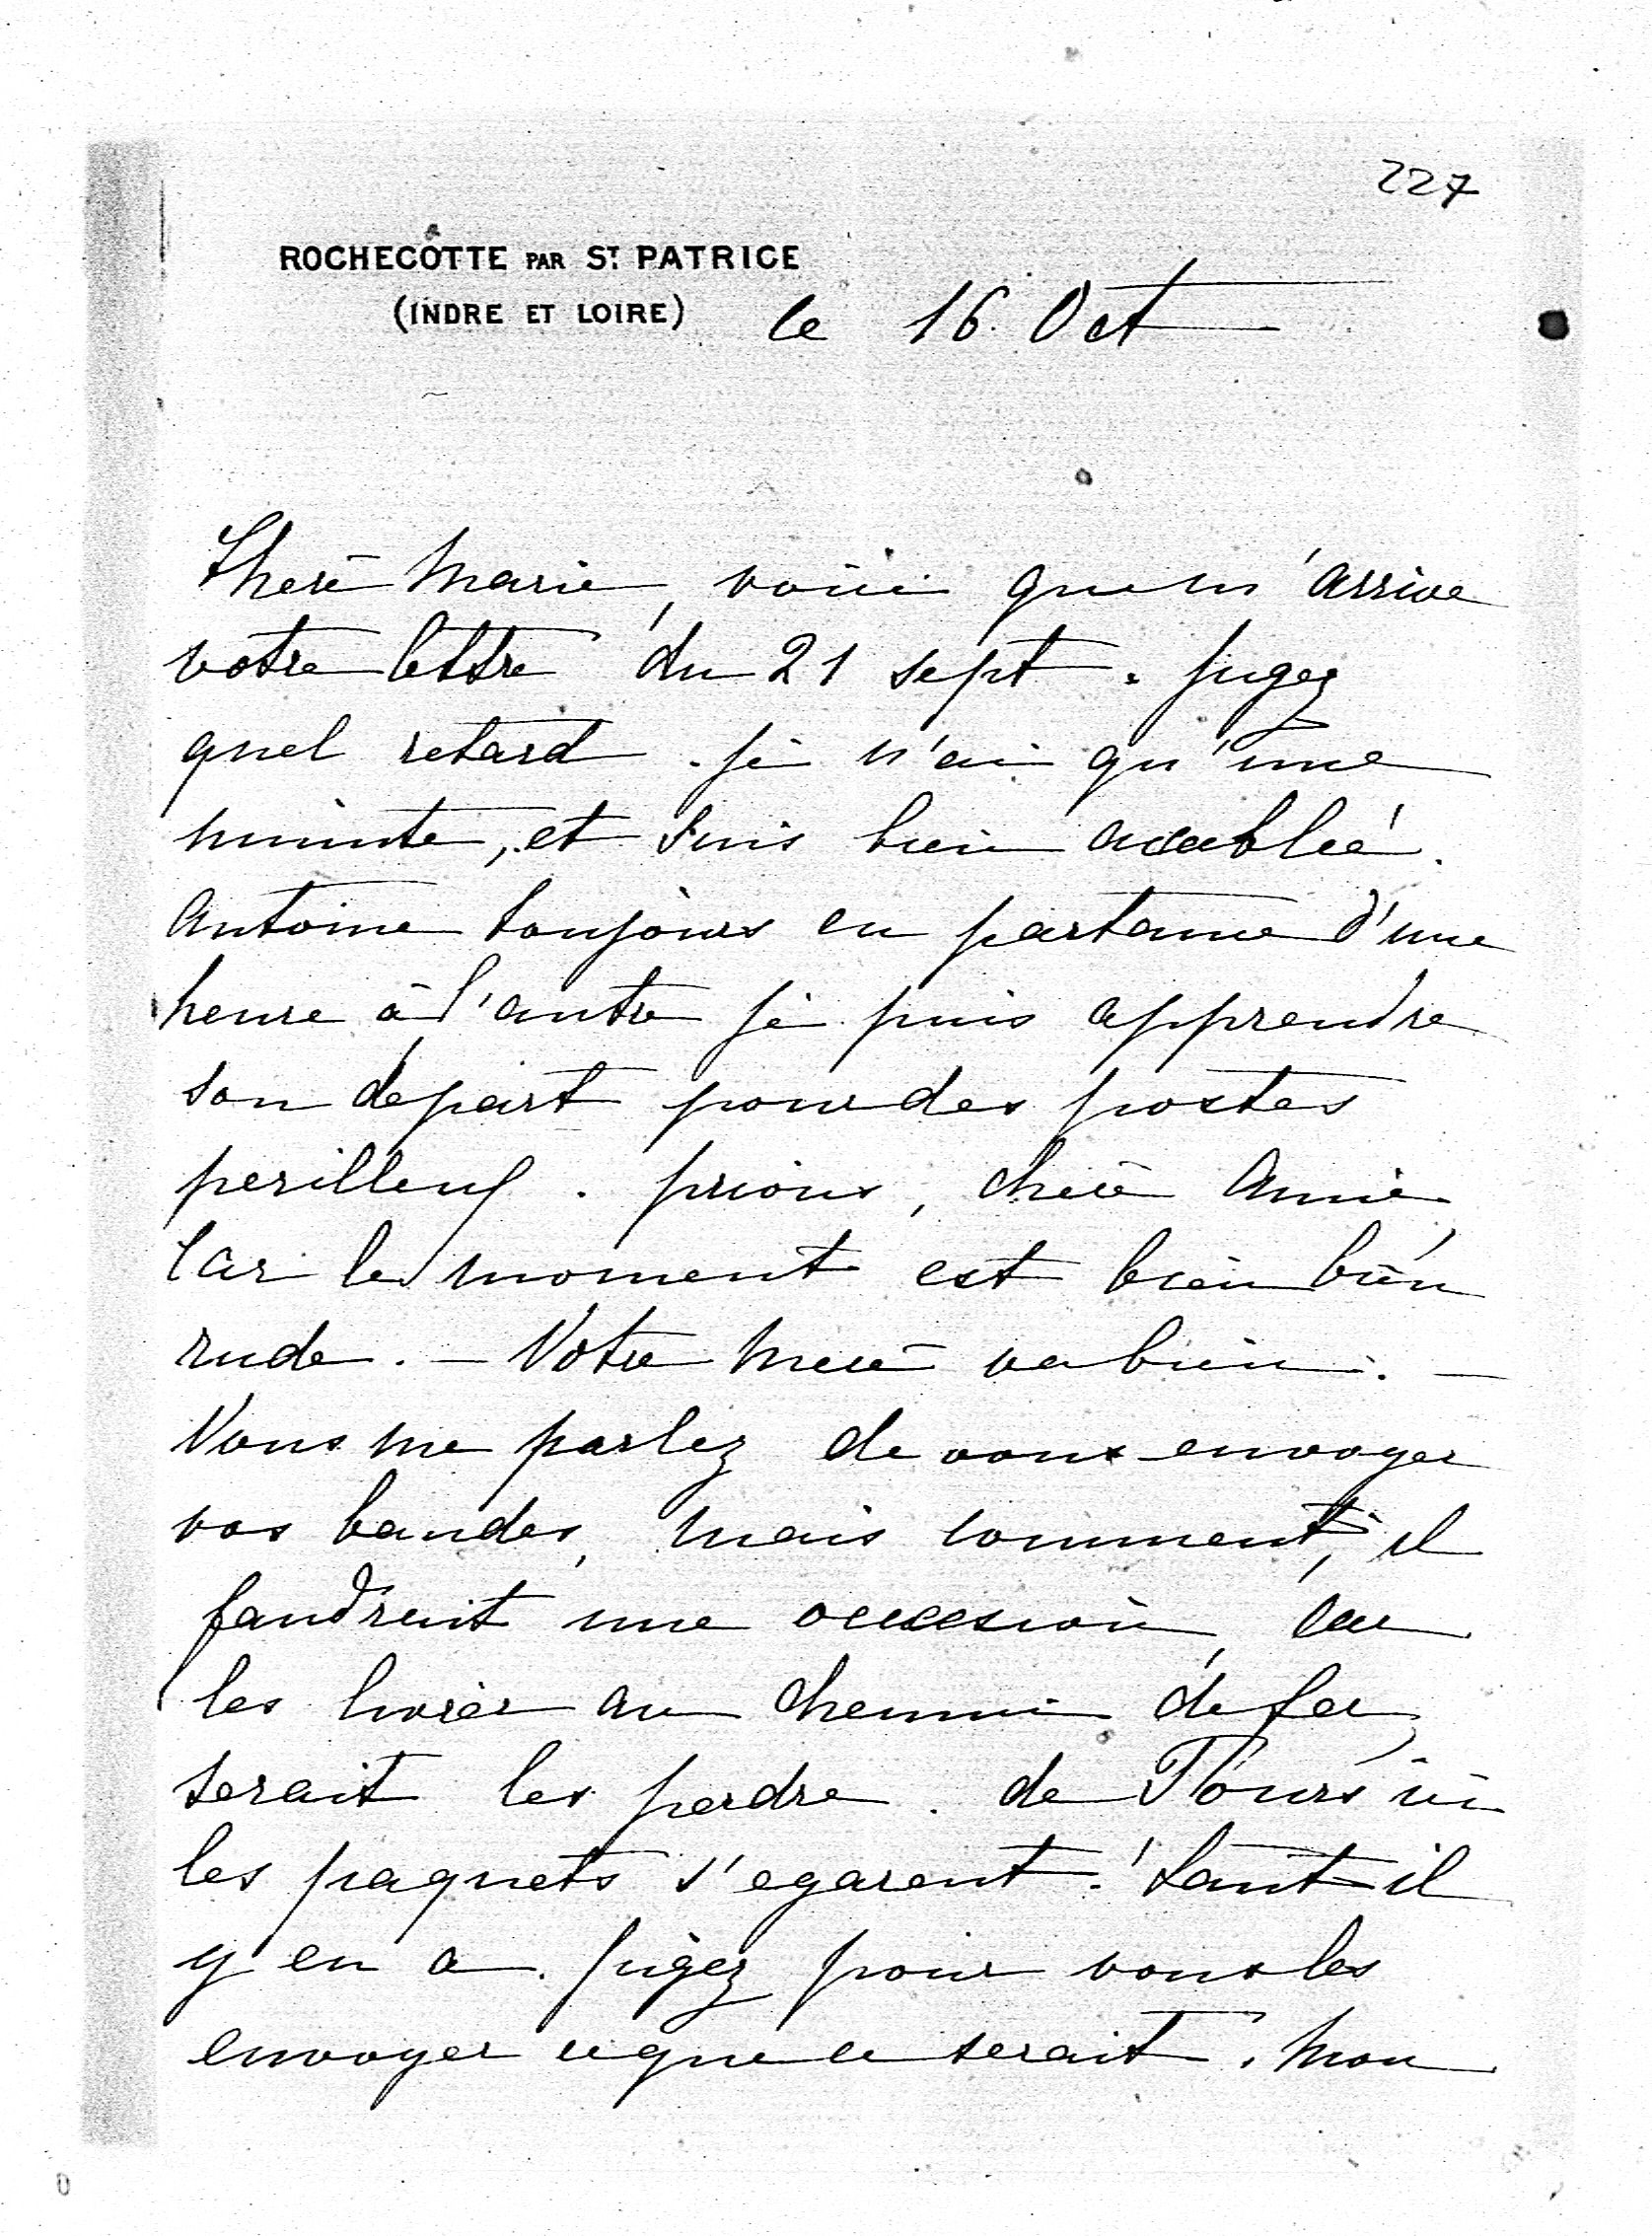 227
ROCHECOTTE PAR ST PATRICE
(INDRE ET LOIRE) le 16 Oct
Chere Marie, voici que m'arrive
votre lettre du 21 sept. jugez
quel retard. je n'ai qu'une
minute, et suis bien accablée.
Antoine toujours en partance d'une
heure à l'autre je puis apprendre
son départ pour des postes
perilleux. prions, chère Amie,
car le moment est bien bien
rude. — Votre mere va bien. —
Vous me parlez de vous envoyer
vos bandes, mais comment, il
faudrait une occasion, car
les livrer au chemin de fer,
serait les perdre. de Tours ici
les paquets s'egarent. ! tant il
y en a. jugez pour vous les
envoyer ce que ce serait. Mon